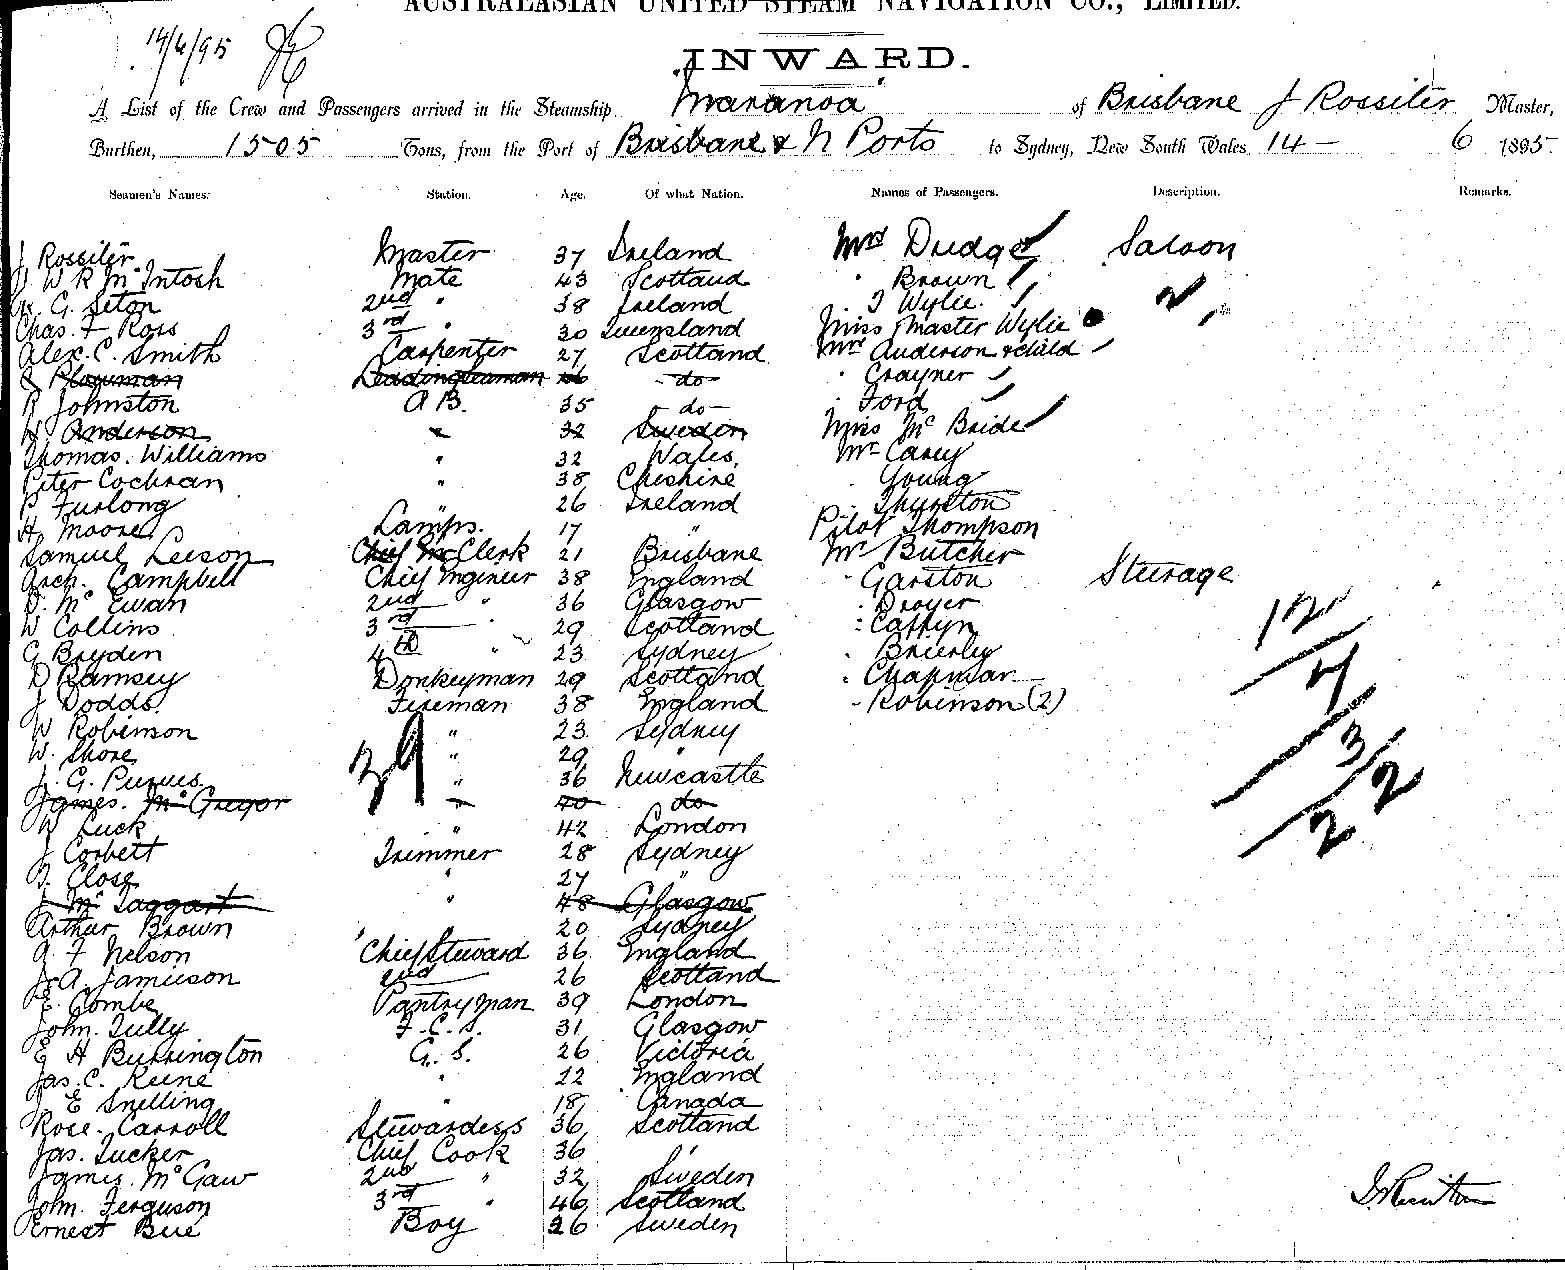 AUSTRALASIAN UNITED STEAM NAVIGATION CO., LIMITED.
14/6/95
INWARD.
A List of the Crew and Passengers arrived in the Steamship "Maranoa" of Brisbane J Rossiter Master,
Burthen, 1505 Tons, from the Port of Brisbane & N Ports to Sydney, New South Wales 14 - 6 1895
Seamen's Names. Station. Age. Of what Nation. Names of Passengers. Description. Remarks.
J Rossiter Master 37 Ireland Mrs Dudge Saloon
W R McIntosh Mate 43 Scotland " Brown
G. Seton 2nd " 38 Ireland " J Wylie
Chas. F Ross 3rd " 30 Queensland Miss Master Wylie
Alex. C. Smith Carpenter 27 Scotland Mrs Anderson & child
Plowman Leading Seaman 26 do " Crayner
R Johnston A B. 35 do " Ford
W Anderson " 32 Sweden Miss McBride
Thomas. Williams " 32 Wales. Mr Carey
Peter Cochran " 38 Cheshire " Young
P Furlong 26 Ireland " Thurston
H Moore Lamps. 17 " Pilot Thompson
Samuel Leeson Chief Clerk 21 Brisbane Mr Butcher
Arch. Campbell Chief Engineer 38 England " Garston Steerage
D. McEwan 2nd " 36 Glasgow " Droyer
W Collins 3rd " 29 Scotland " Caffyn
G Bryden 4th " 23 Sydney " Brierley
D Ramsey Donkeyman 29 Scotland " Chapman
J Dodds Fireman 38 England " Robinson (2)
W Robinson " 23 Sydney
W. Shore " 29 "
J. G. Purves " 36 Newcastle
James. McGregor " 40 do
W Luck " 42 London
J Corbett Trimmer 28 Sydney
Close " 27 "
J McTaggart " 48 Glasgow
Arthur Brown 20 Sydney
A F Nelson Chief Steward 36 England
J. A. Jamieson 2nd 26 Scotland
E. Combe Pantryman 39 London
John. Tully F. C. S. 31 Glasgow
E H Burrington G. S. 26 Victoria
Jas. C. Keene " 22 England
E Snelling " 18 Canada
Rose. Carroll Stewardess 36 Scotland
Jas. Tucker Chief Cook 36 "
James. McGaw 2nd " 32 Sweden
John. Ferguson 3rd " 46 Scotland
Ernest Bue Boy 26 Sweden
39
12
4
3/2
2